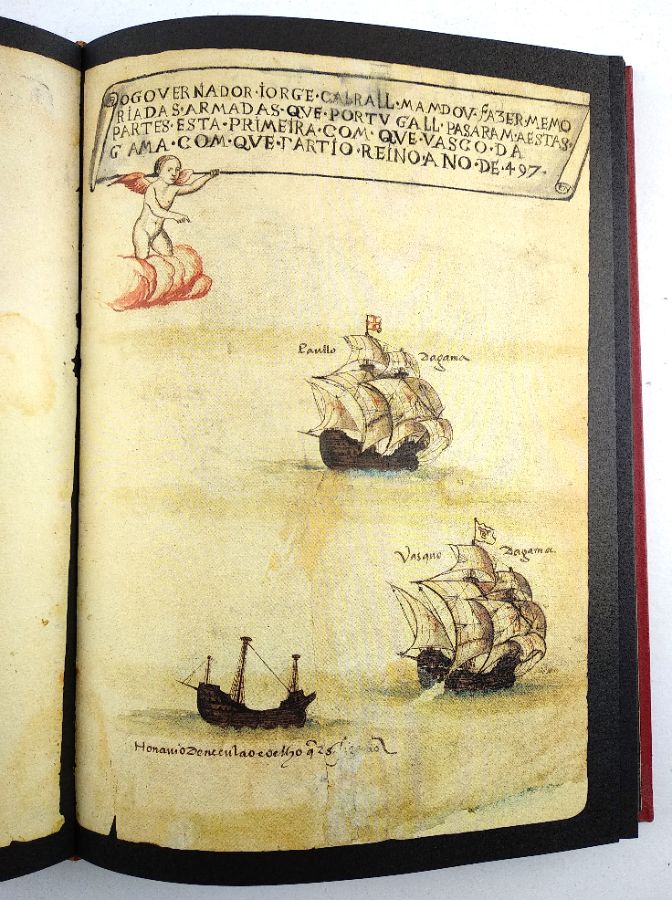 OGOVERNADOR·IORGE·CABRALL·MAMDOV·FA3ER·MEMO
RIADAS·ARMADAS·QVE·PORTVGALL·PASARAM·AESTAS·
PARTES·ESTA·PRIMEIRA·COM·QVE·VASCO·DA
GAMA·COM·QVE·PARTIO·REINO·ANO·DE·497·
Paullo Dagama
Vasquo Dagama
Honauio De coelho